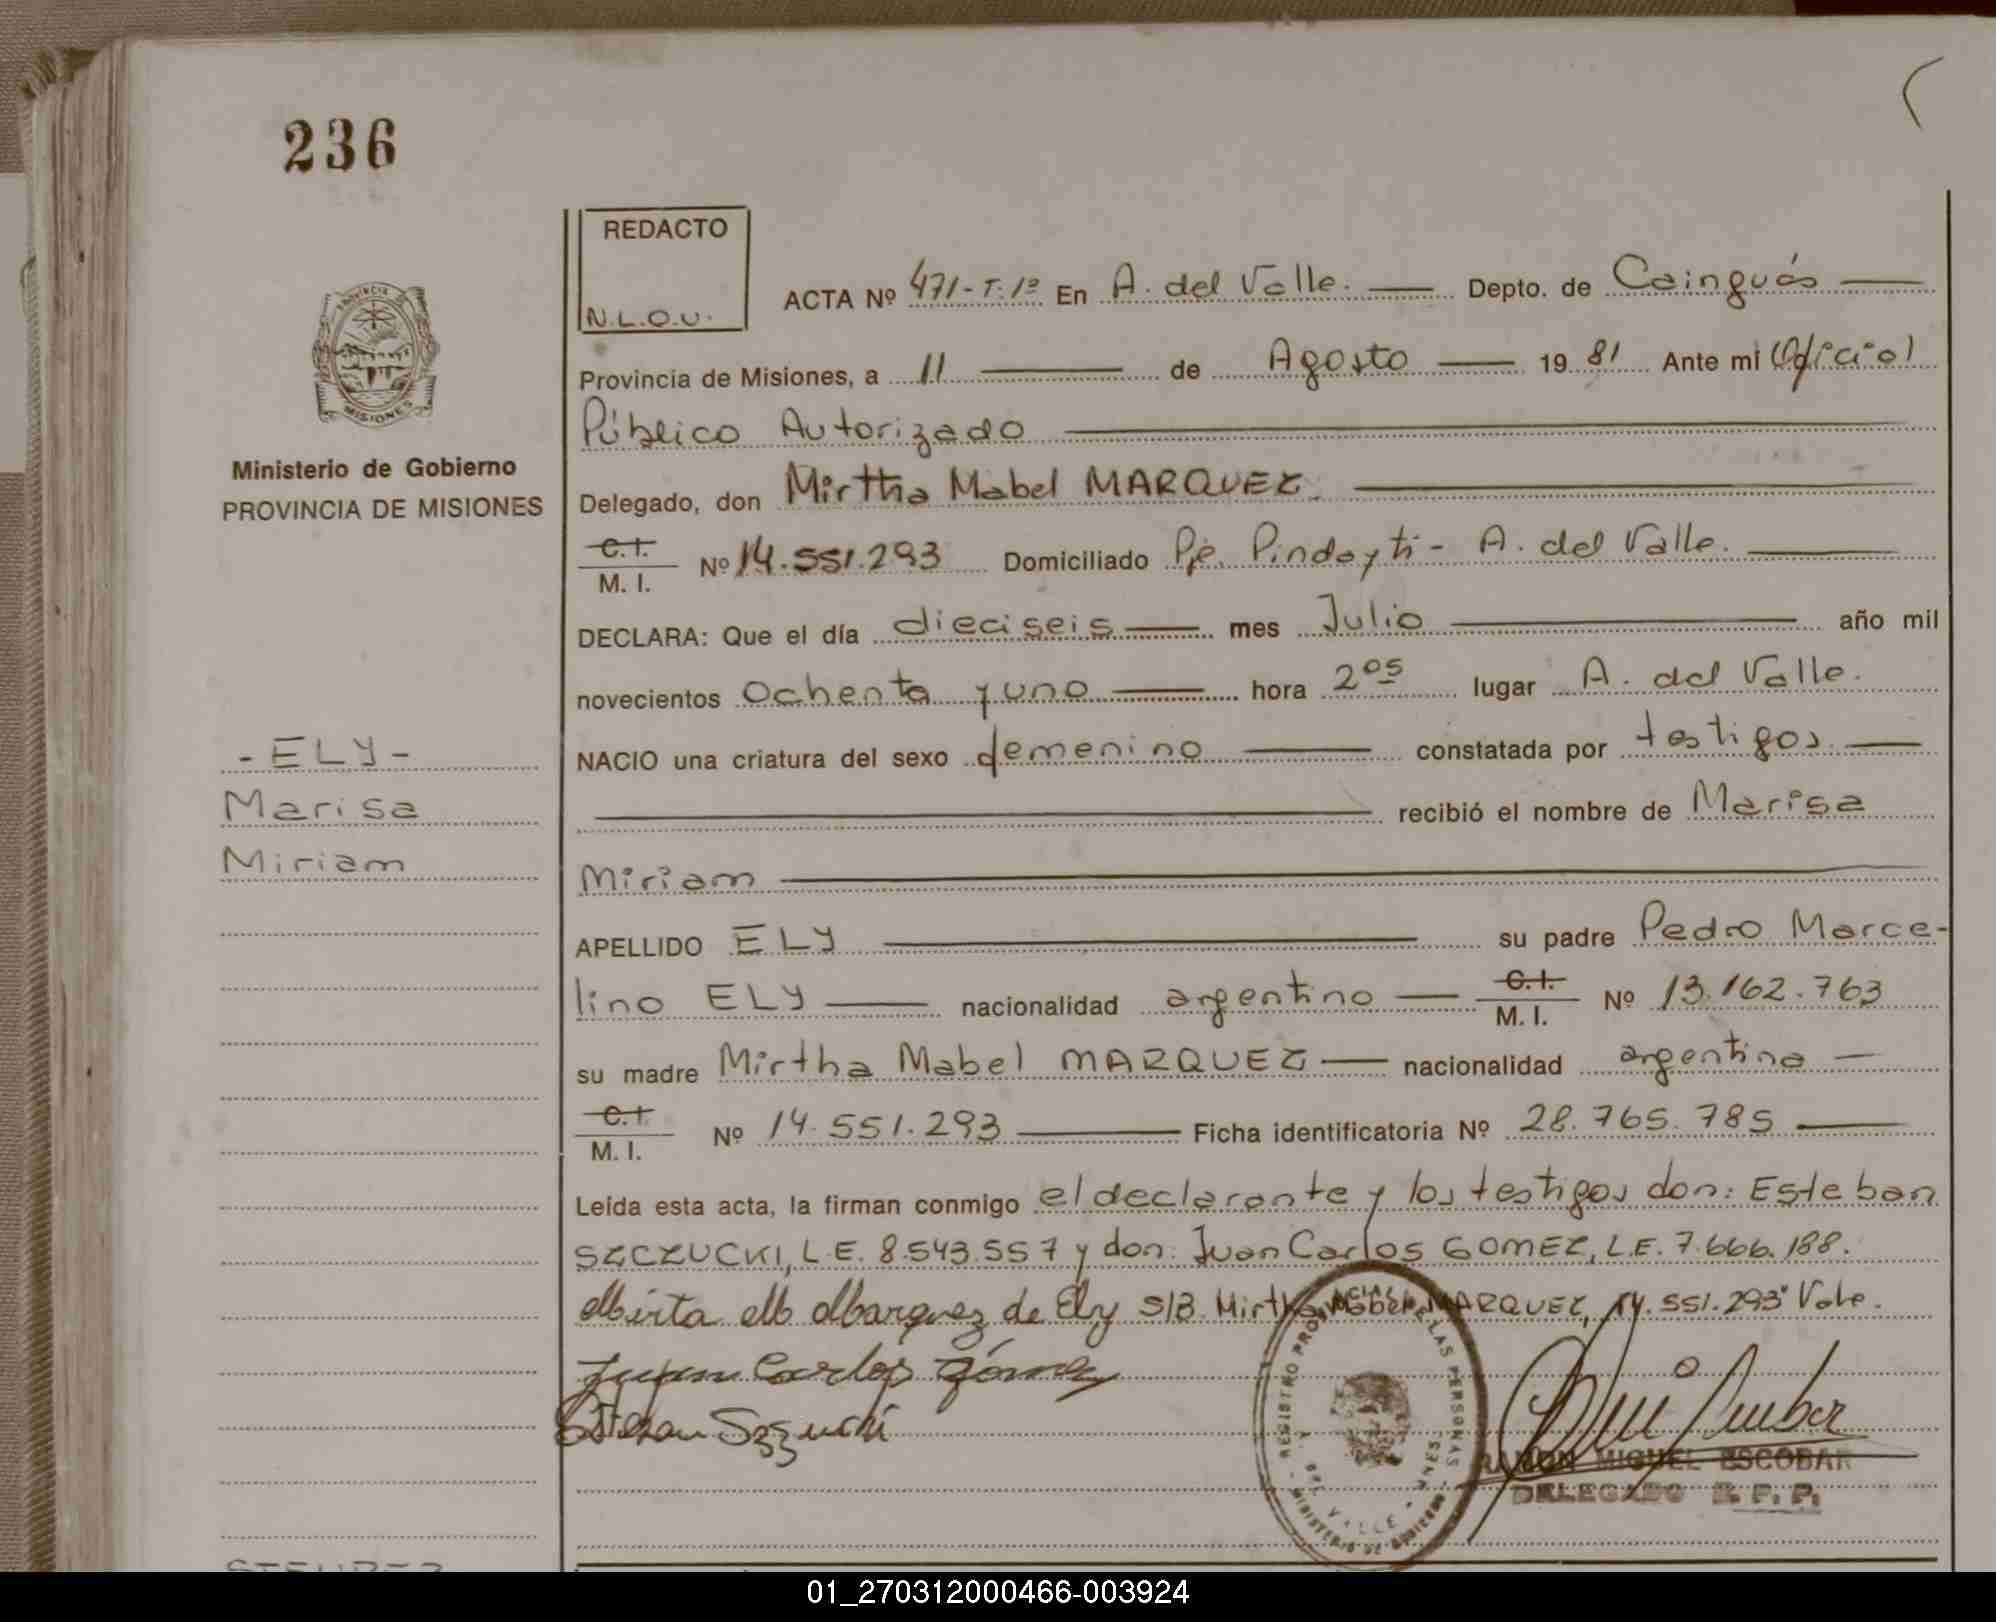 236
REDACTO
N.L.O.U.
ACTA Nº 471-T.1º En A. del Valle. Depto. de Cainguás
Provincia de Misiones, a 11 de Agosto 1981 Ante mi (Oficial
Público Autorizado
Delegado, don Mirtha Mabel MARQUEZ.
C.I.
M. I. Nº 14.551.293 Domiciliado Pje. Pindayti - A. del Valle.
DECLARA: Que el día dieciseis mes Julio año mil
novecientos ochenta y uno hora 2 05 lugar A. del Valle.
NACIO una criatura del sexo femenino constatada por testigos
recibió el nombre de Marisa
Miriam
APELLIDO ELY su padre Pedro Marce-
lino ELY nacionalidad argentino C.I. M. I. Nº 13.162.763
su madre Mirtha Mabel MARQUEZ nacionalidad argentina
C.I.
M. I. Nº 14.551.293 Ficha identificatoria Nº 28.765.785
Leída esta acta, la firman conmigo el declarante y los testigos don: Esteban
SZCZUCKI, L.E. 8.543.557 y don: Juan Carlos GOMEZ, L.E. 7.666.188.
Mirta M Marquez de Ely S/B. Mirtha Mabel MARQUEZ, 14.551.293 Vale.
Juan Carlos Gómez
Esteban
RAMON MIGUEL ESCOBAR
DELEGADO R. P. P.
REGISTRO PROVINCIAL DE LAS PERSONAS
MINISTERIO DE GOBIERNO
A. DEL VALLE - MNES
PROVINCIA DE
MISIONES
Ministerio de Gobierno
PROVINCIA DE MISIONES
- ELY -
Marisa
Miriam
01_270312000466-003924